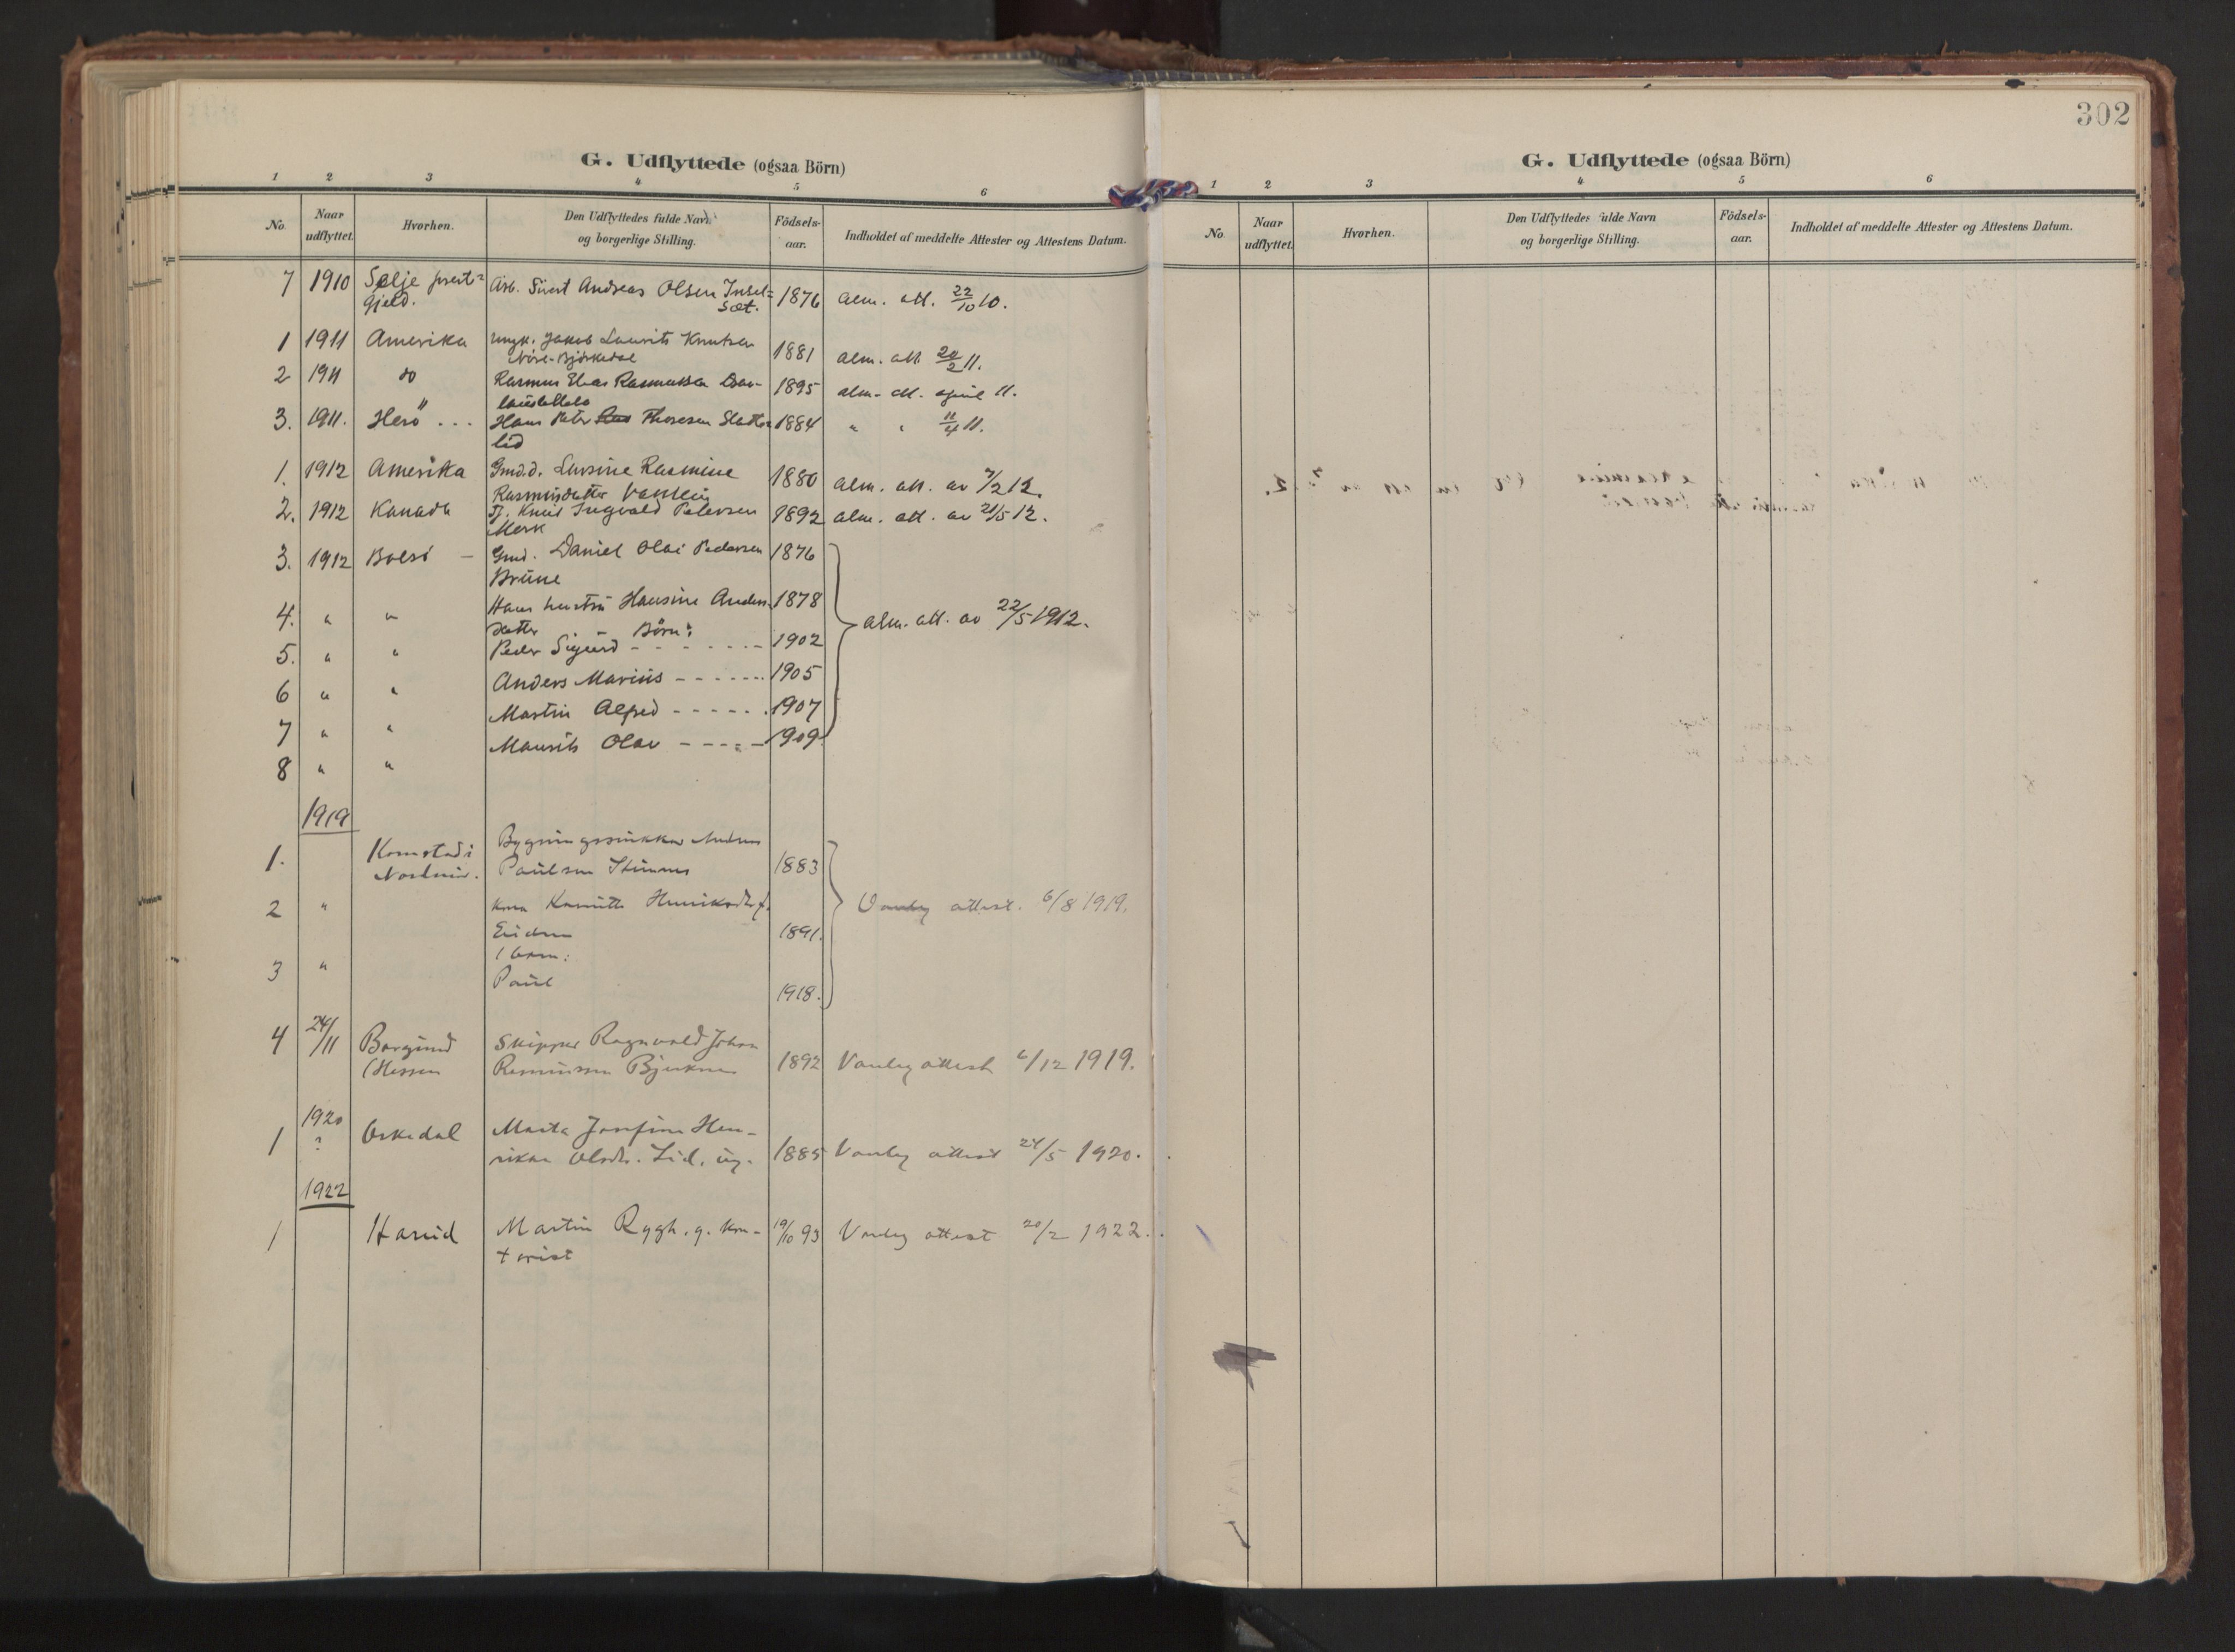 302
G. Udflyttede (ogsaa Börn)
1 2 3 4 5 6
No. Naar udflyttet. Hvorhen. Den Udflyttedes fulde Navn og borgerlige Stilling. Födsels-aar. Indholdet af meddelte Attester og Attestens Datum.
7 1910 Selje prest= Arb. Sivert Andreas Olsen 1876 alm. att. 22/10 10.
gjeld. Sæt.
1 1911 Amerika ungk. Jakob Laurits Knutsen 1881 alm. att. 20/2 11.
Bjørkedal
2 1911 do Rasmus Elias Rasmussen 1895 alm. att. april 11.
3. 1911. Herö ... Hans Peter Thoresen 1884 " " 11/4 11.
lid
1. 1912 Amerika Gmd.d. Lovsine Rasmine 1880 alm. att. av 7/2 12.
Rasmusdatter
2. 1912 Kanada Knut Ingvald Petersen 1892 alm. att. av 21/5 12.
Mork
3. 1912 Bolsö - Gmd. Daniel Olai Pedersen 1876
Brune
4. " " Hans hustru Hansine Anders 1878 alm. att. av 22/5 1912.
datter Börn:
5. " " Peder Sigurd - - - - - - - 1902
6 " " Anders Marius - - - - - - 1905
7 " " Martin Alfred - - - - - - 1907
8 " " Maurits Olav - - - - - 1909
1919
1. Kornstad i Bygningssnikker
Nordmør. Paulsen 1883
2 " kona Henriksdtr. Vanleg attest. 6/8 1919.
1891.
3 " 1 barn:
Paul 1918.
4 24/11 Borgund Skipper Ragnvald Johan
(Hessen Rasmussen 1892 Vanleg attest 6/12 1919.
1920
1 ? Oskedal Marta Josefine Hen-
rikke Olsdtr. Lid. ug. 1885 Vanleg attest 24/5 1920.
1922
1 Hareid Martin Rygh. g. kon- 19/10 93 Vanleg attest 20/2 1922.
torist
G. Udflyttede (ogsaa Börn)
1 2 3 4 5 6
No. Naar udflyttet. Hvorhen. Den Udflyttedes fulde Navn og borgerlige Stilling. Födsels-aar. Indholdet af meddelte Attester og Attestens Datum.